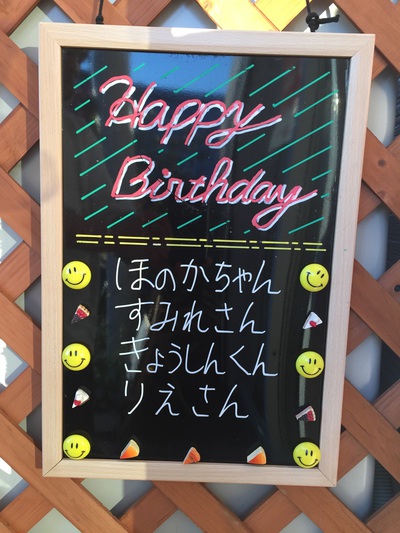 Happy
Birthday
ほのかちゃん
すみれさん
きょうしんくん
りえさん